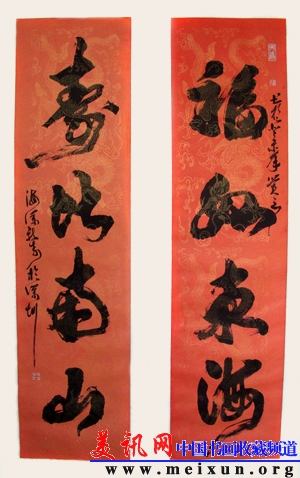 福如东海
寿比南山
于深圳
美讯网
中国书画收藏频道
www.meixun.org